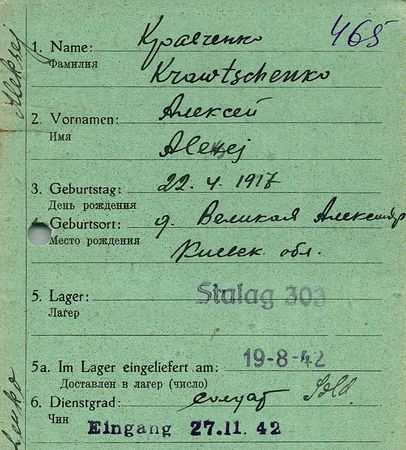 465
Кравченко
1. Name:
Фамилия
Krawtschenko
2. Vornamen: Алексей
Имя
Alexej
3. Geburtstag: 22. 4. 1917
День рождения
4. Geburtsort: д. Великая Александр
Место рождения
Киевск. обл.
5. Lager: Stalag 303
Лагерь
5a. Im Lager eingeliefert am: 19-8-42
Доставлен в лагерь (число)
6. Dienstgrad: солдат Sold.
Чин
Eingang 27.11. 42
Aleksej